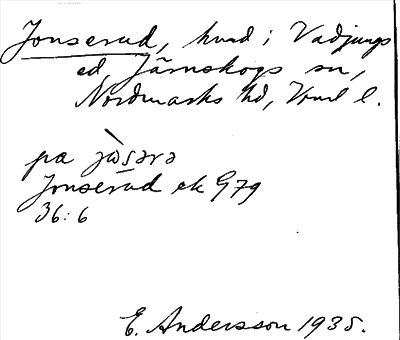 Jonserud, hmd i Vadjungs
ed, Järnskogs sn,
Nordmarks hd, Vrml l.
på jò̤sərə
Jonserud ek G79
36:6
E. Andersson 1935.